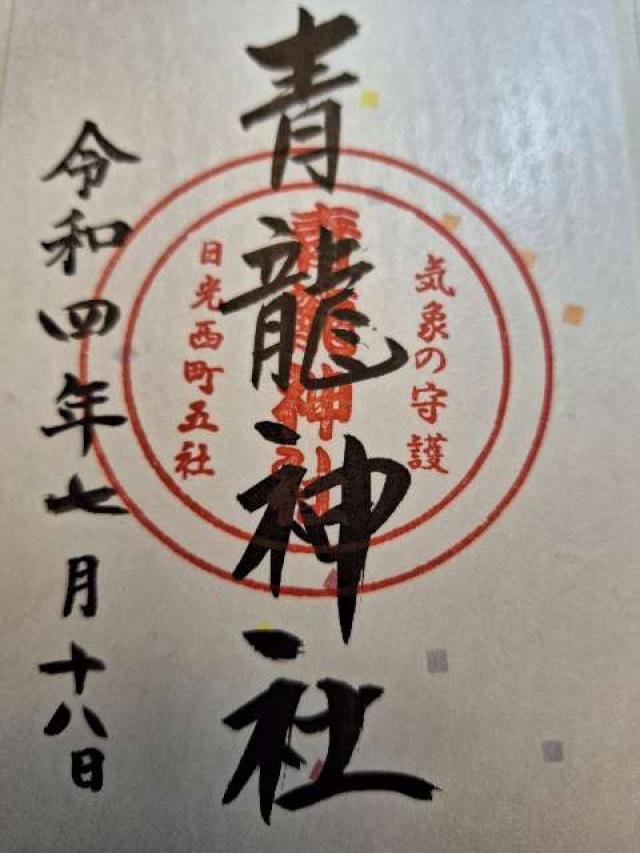 気象の守護
青龍神社
青龍神社
日光西町五社
令和四年七月十八日